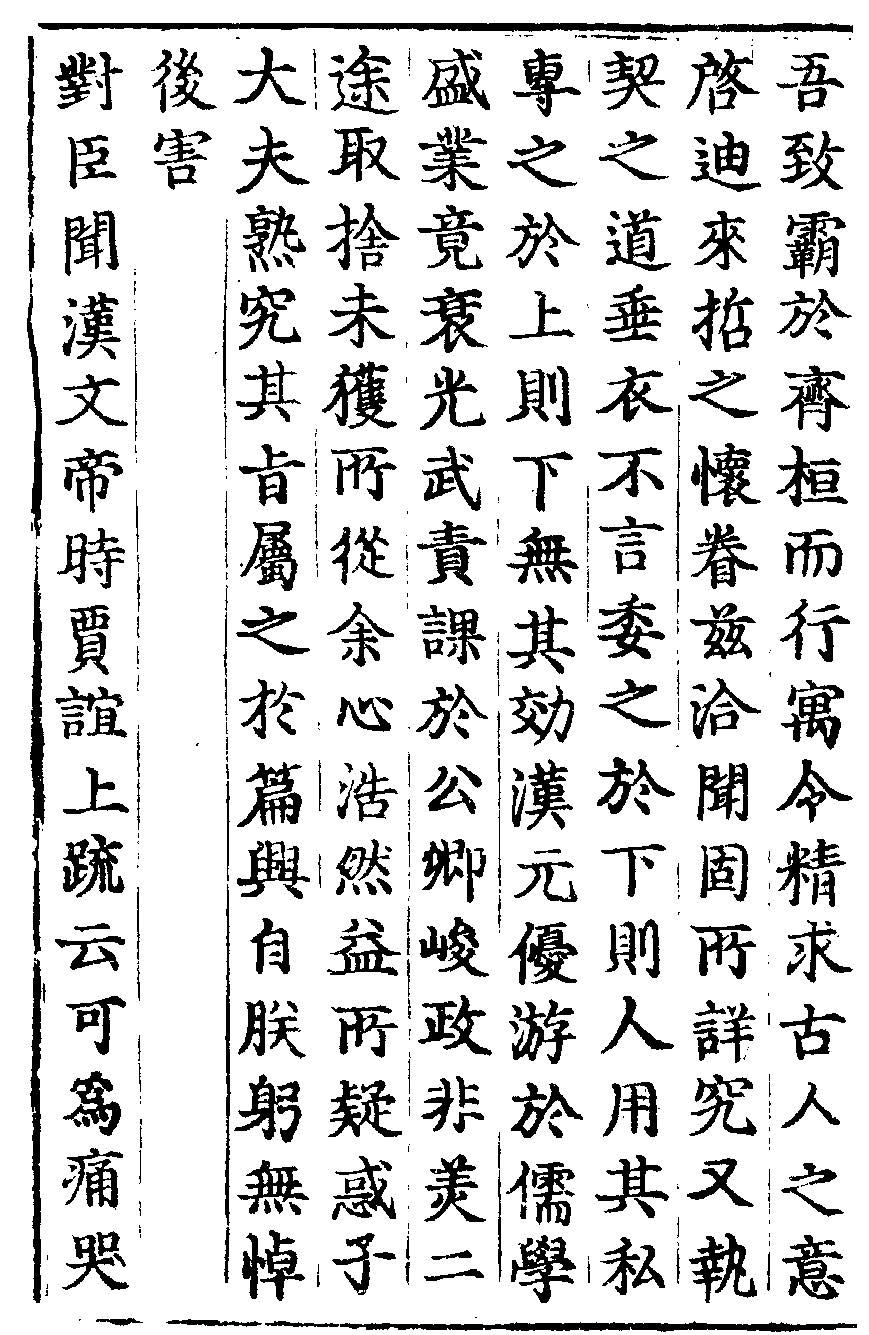 吾致霸於齊桓而行寓令精求古人之意
啓迪來哲之懷眷兹洽聞固所詳究又執
契之道垂衣不言委之於下則人用其私
專之於上則下無其効漢元優游於儒學
盛業竟衰光武責課於公卿峻政非美二
途取捨未獲所從余心浩然益所疑惑子
大夫熟究其旨屬之於篇興自朕躬無悼
後害
對臣聞漢文帝時賈誼上疏云可爲痛哭